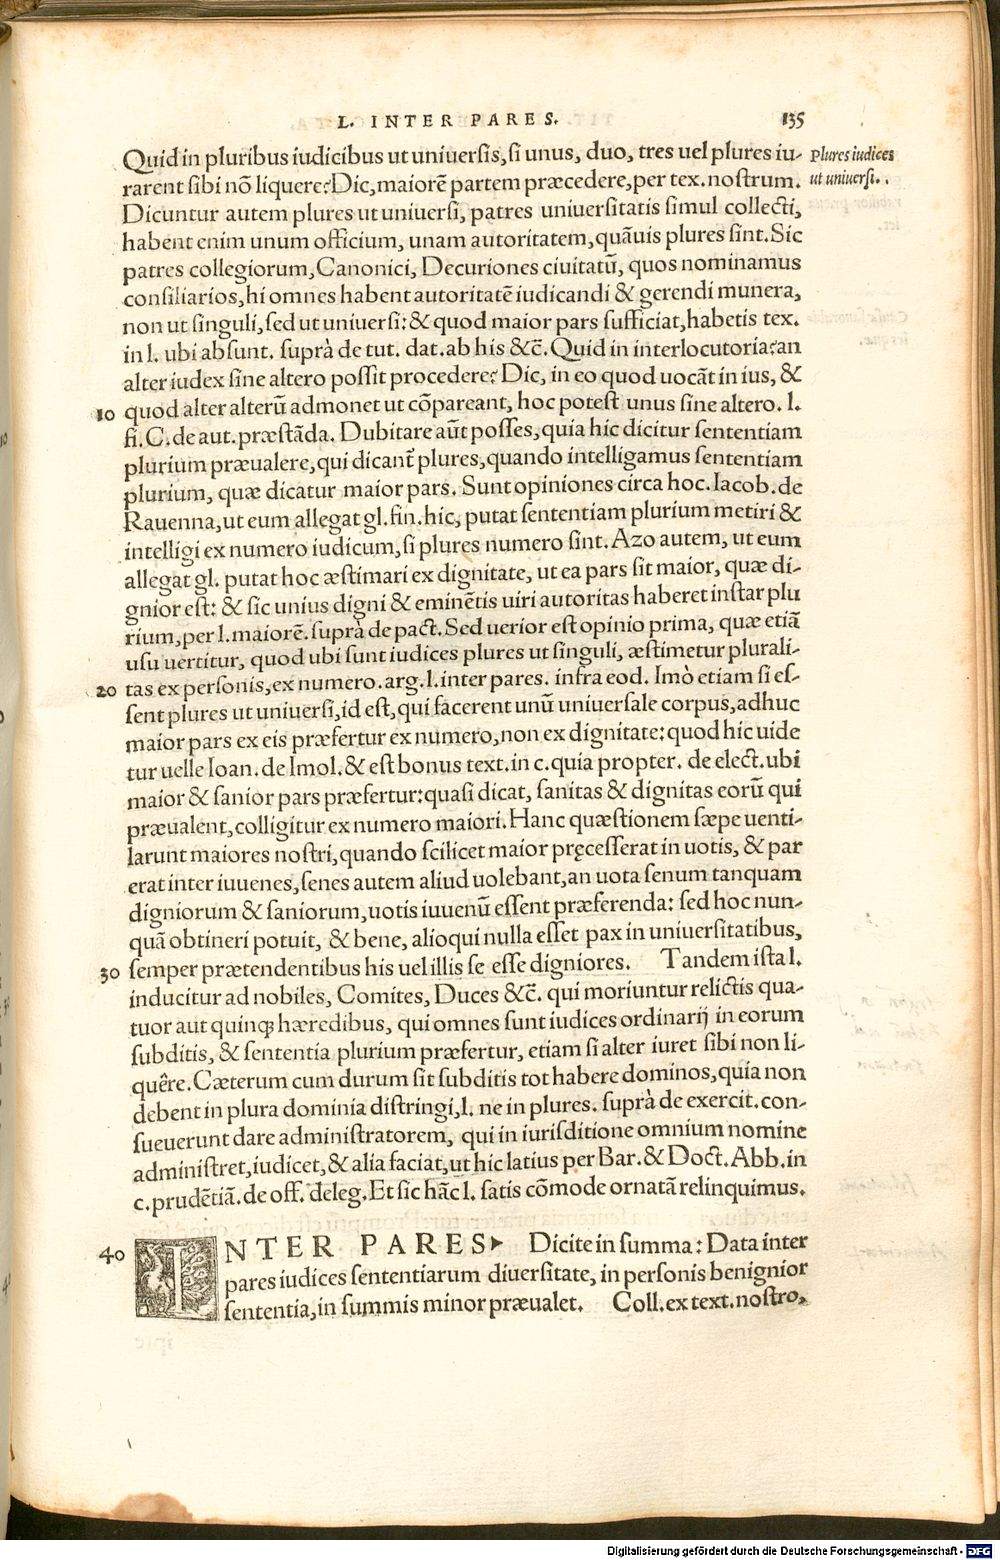 L. INTER PARES. 135
Quid in pluribus iudicibus ut uniuersis, si unus, duo, tres uel plures iu-
rarent sibi nõ liquere? Dic, maiorẽ partem præcedere, per tex. nostrum.
Plures iudices
ut uniuersi.
Dicuntur autem plures ut uniuersi, patres uniuersitatis simul collecti,
habent enim unum officium, unam autoritatem, quãuis plures sint. Sic
patres collegiorum, Canonici, Decuriones ciuitatũ, quos nominamus
consiliarios, hi omnes habent autoritatẽ iudicandi & gerendi munera,
non ut singuli, sed ut uniuersi: & quod maior pars sufficiat, habetis tex.
in l. ubi absunt. suprà de tut. dat. ab his &c̃. Quid in interlocutoria? an
alter iudex sine altero possit procedere? Dic, in eo quod uocãt in ius, &
10 quod alter alterũ admonet ut cõpareant, hoc potest unus sine altero. l.
fi. C. de aut. præstãda. Dubitare aũt posses, quia hic dicitur sententiam
plurium præualere, qui dicant̃ plures, quando intelligamus sententiam
plurium, quæ dicatur maior pars. Sunt opiniones circa hoc. Iacob. de
Rauenna, ut eum allegat gl. fin. hic, putat sententiam plurium metiri &
intelligi ex numero iudicum, si plures numero sint. Azo autem, ut eum
allegat gl. putat hoc æstimari ex dignitate, ut ea pars sit maior, quæ di-
gnior est: & sic unius digni & eminẽtis uiri autoritas haberet instar plu
rium, per l. maiorẽ. suprà de pact. Sed uerior est opinio prima, quæ etiã
usu uertitur, quod ubi sunt iudices plures ut singuli, æstimetur plurali-
20 tas ex personis, ex numero. arg. l. inter pares. infra eod. Imò etiam si es-
sent plures ut uniuersi, id est, qui facerent unũ uniuersale corpus, adhuc
maior pars ex eis præfertur ex numero, non ex dignitate: quod hic uide
tur uelle Ioan. de Imol. & est bonus text. in c. quia propter. de elect. ubi
maior & sanior pars præfertur: quasi dicat, sanitas & dignitas eorũ qui
præualent, colligitur ex numero maiori. Hanc quæstionem sæpe uenti-
larunt maiores nostri, quando scilicet maior pręcesserat in uotis, & par
erat inter iuuenes, senes autem aliud uolebant, an uota senum tanquam
digniorum & saniorum, uotis iuuenũ essent præferenda: sed hoc nun-
quã obtineri potuit, & bene, alioqui nulla esset pax in uniuersitatibus,
30 semper prætendentibus his uel illis se esse digniores. Tandem ista l.
inducitur ad nobiles, Comites, Duces &c̃. qui moriuntur relictis qua-
tuor aut quinq; hæredibus, qui omnes sunt iudices ordinarij in eorum
subditis, & sententia plurium præfertur, etiam si alter iuret sibi non li-
quêre. Cæterum cum durum sit subditis tot habere dominos, quia non
debent in plura dominia distringi, l. ne in plures. suprà de exercit. con-
sueuerunt dare administratorem, qui in iurisditione omnium nomine
administret, iudicet, & alia faciat, ut hic latius per Bar. & Doct. Abb. in
c. prudẽtiã. de off. deleg. Et sic hãc l. satis cõmode ornatã relinquimus.
40 INTER PARES Dicite in summa: Data inter
pares iudices sententiarum diuersitate, in personis benignior
sententia, in summis minor præualet. Coll. ex text. nostro,
Digitalisierung gefördert durch die Deutsche Forschungsgemeinschaft - DFG